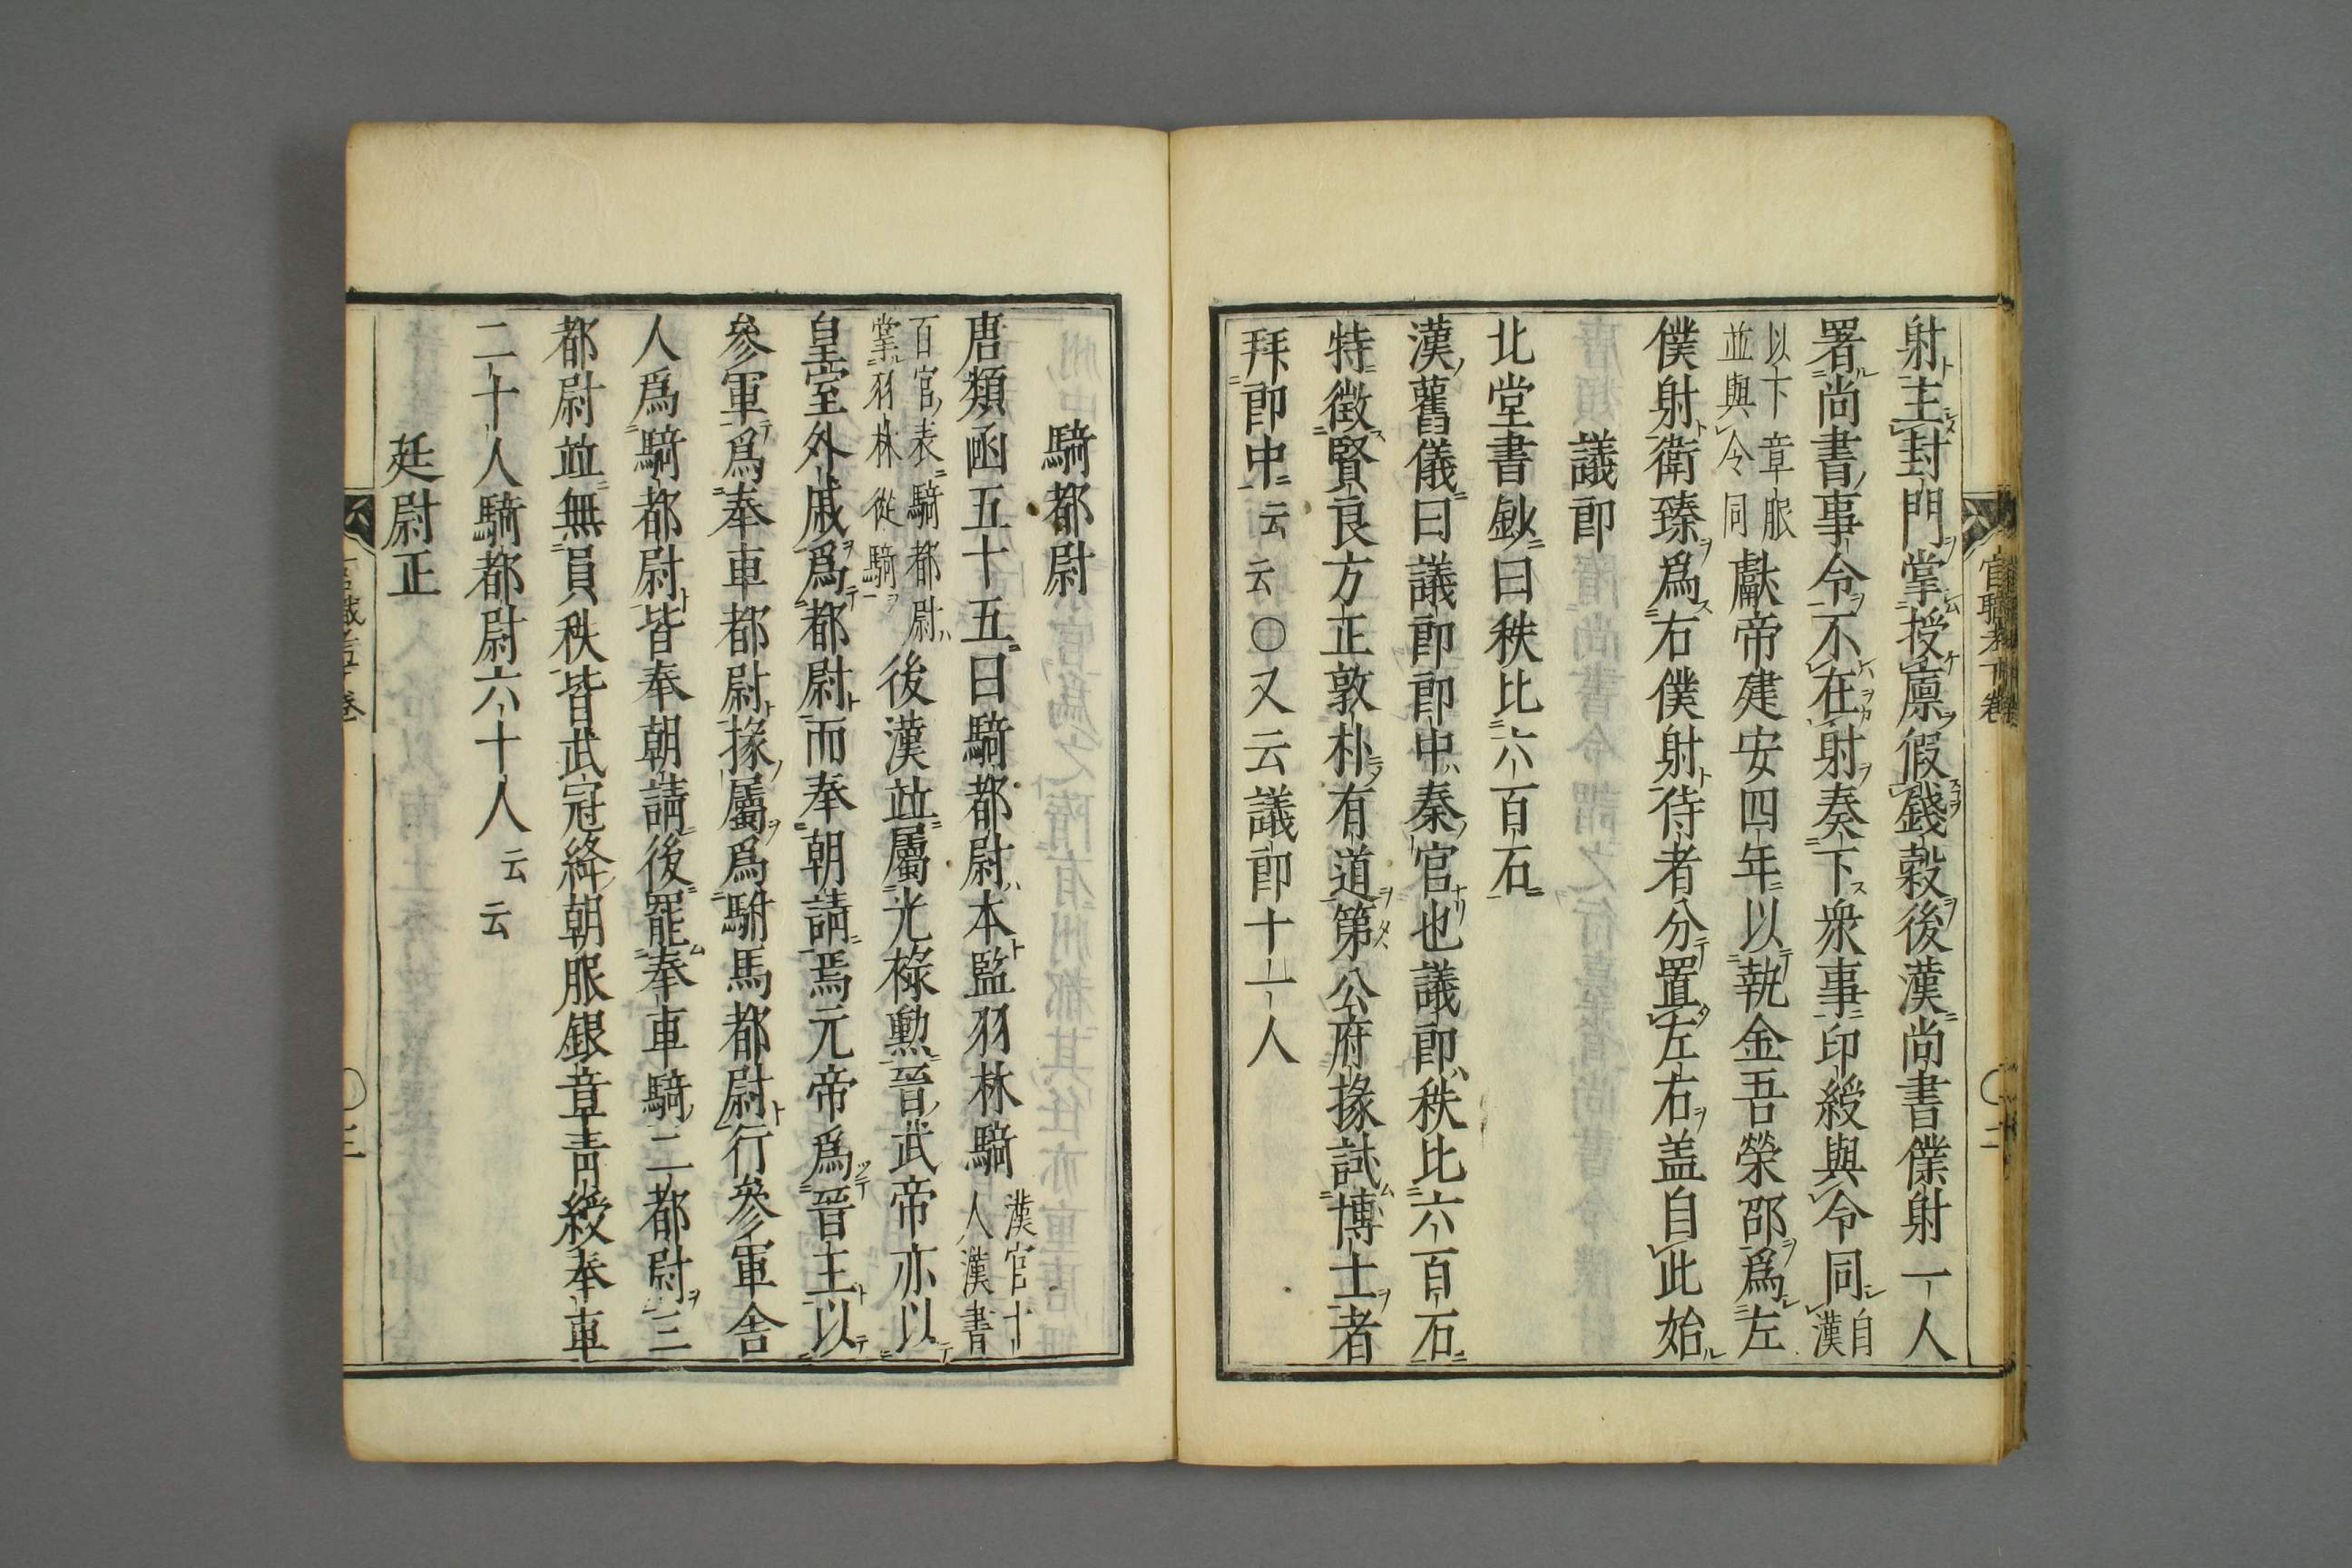 射主封門掌授廩假錢穀後漢尚書僕射一人
署尚書事令不在射奏下衆事印綬與令同自漢
以下章服並與令同獻帝建安四年以執金吾榮邵爲左
僕射衛臻爲右僕射侍者分置左右盖自此始
議郎
北堂書鈔曰秩比六百石
漢舊儀曰議郎郎中秦官也議郎秩比六百石
特徴賢良方正敦朴有道第公府掾試博士者
拜郎中云云〇又云議郎十二人
騎都尉
唐類函五十五曰騎都尉本監羽林騎漢官十人漢書
百官表騎都尉掌羽林從騎後漢並屬光祿勲晉武帝亦以
皇室外戚爲都尉而奉朝請焉元帝爲晉主以
參軍爲奉車都尉掾屬爲駙馬都尉行參軍舎
人爲騎都尉皆奉朝請後罷奉車騎二都尉三
都尉並無員秩皆武冠絳朝服銀章靑綬奉車
二十人騎都尉六十人云云
廷尉正